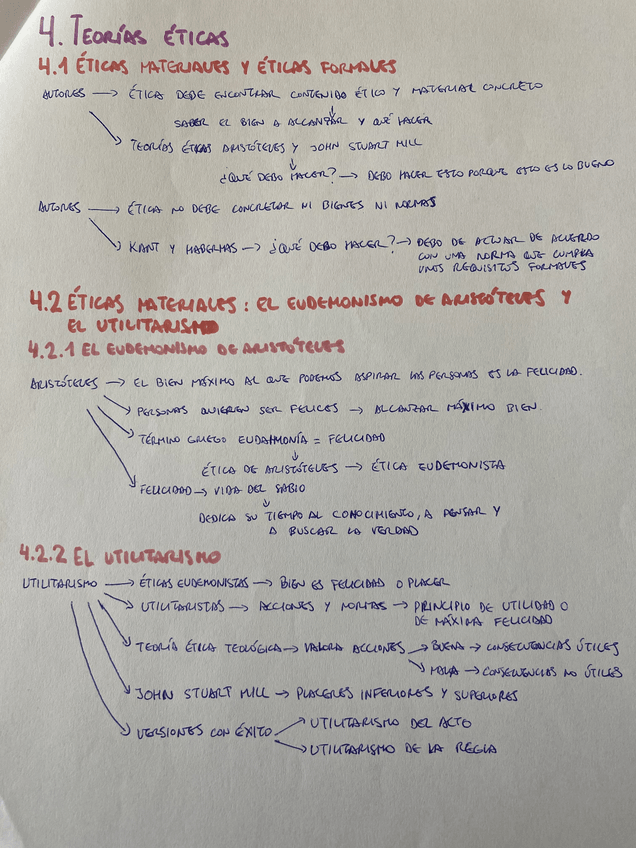 4. TEORÍAS ÉTICAS
4.1 ÉTICAS MATERIALES Y ÉTICAS FORMALES
AUTORES → ÉTICA DEBE ENCONTRAR CONTENIDO ÉTICO Y MATERIAL CONCRETO
↓
SABER EL BIEN A ALCANZAR Y QUÉ HACER
↘ TEORÍAS ÉTICAS ARISTÓTELES Y JOHN STUART MILL
↓
¿QUÉ DEBO HACER? → DEBO HACER ESTO PORQUE ESTO ES LO BUENO
AUTORES → ÉTICA NO DEBE CONCRETAR NI BIENES NI NORMAS
↘ KANT Y HABERMAS → ¿QUÉ DEBO HACER? → DEBO DE ACTUAR DE ACUERDO
CON UNA NORMA QUE CUMPLA
UNOS REQUISITOS FORMALES
4.2 ÉTICAS MATERIALES: EL EUDEMONISMO DE ARISTÓTELES Y
EL UTILITARISMO
4.2.1 EL EUDEMONISMO DE ARISTÓTELES
ARISTÓTELES → EL BIEN MÁXIMO AL QUE PODEMOS ASPIRAR LAS PERSONAS ES LA FELICIDAD.
↘ PERSONAS QUIEREN SER FELICES → ALCANZAR MÁXIMO BIEN.
↘ TÉRMINO GRIEGO EUDAIMONÍA = FELICIDAD
↓
ÉTICA DE ARISTÓTELES → ÉTICA EUDEMONISTA
↘ FELICIDAD → VIDA DEL SABIO
↓
DEDICA SU TIEMPO AL CONOCIMIENTO, A PENSAR Y
A BUSCAR LA VERDAD
4.2.2 EL UTILITARISMO
UTILITARISMO → ÉTICAS EUDEMONISTAS → BIEN ES FELICIDAD O PLACER
↘ UTILITARISTAS → ACCIONES Y NORMAS → PRINCIPIO DE UTILIDAD O
DE MÁXIMA FELICIDAD
↘ TEORÍA ÉTICA TEOLÓGICA → VALORA ACCIONES → BUENA → CONSECUENCIAS ÚTILES
↘ MALA → CONSECUENCIAS NO ÚTILES
↘ JOHN STUART MILL → PLACERES INFERIORES Y SUPERIORES
↘ VERSIONES CON ÉXITO → UTILITARISMO DEL ACTO
→ UTILITARISMO DE LA REGLA